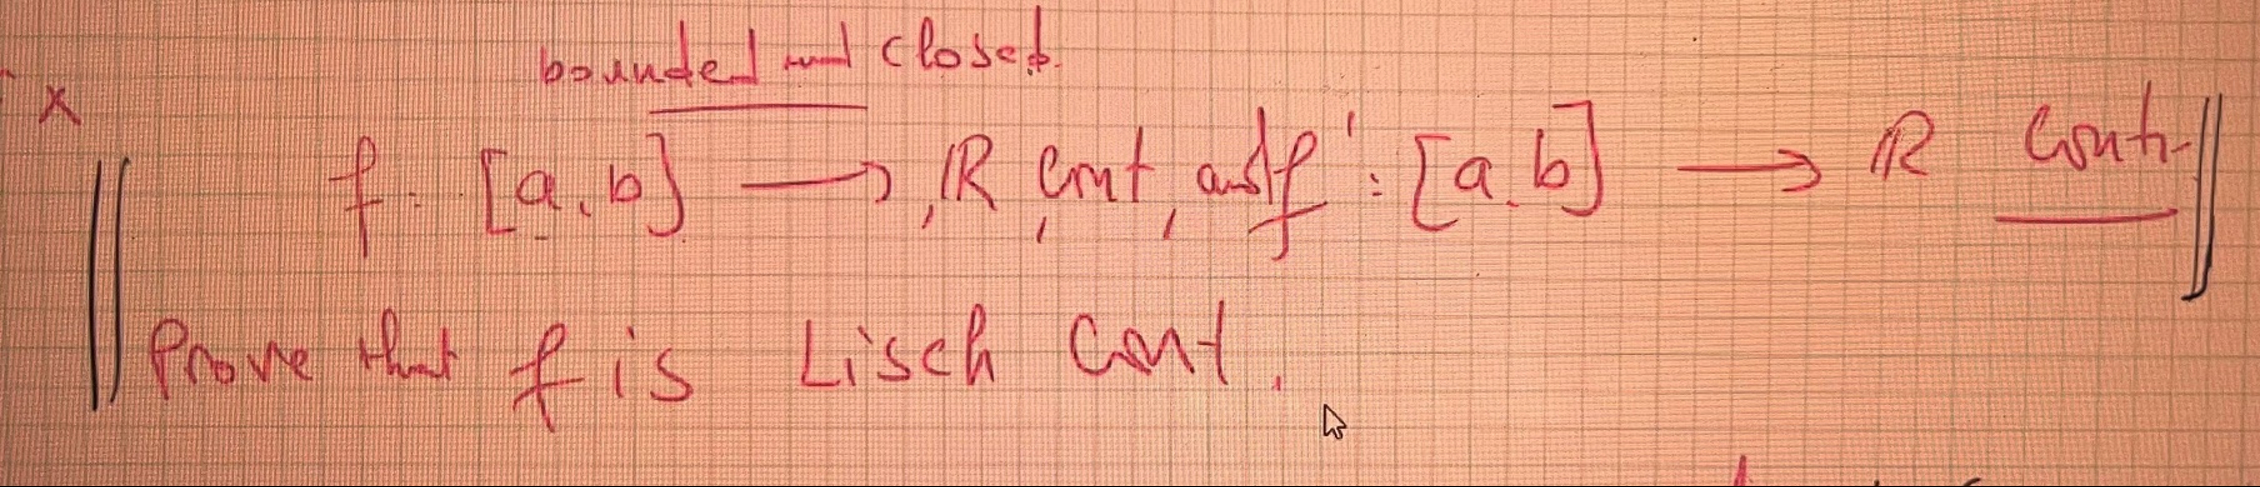 bounded and closed.
x
f: [a, b] → ℝ cont, and f': [a, b] → ℝ cont.
Prove that f is Lisch cont.